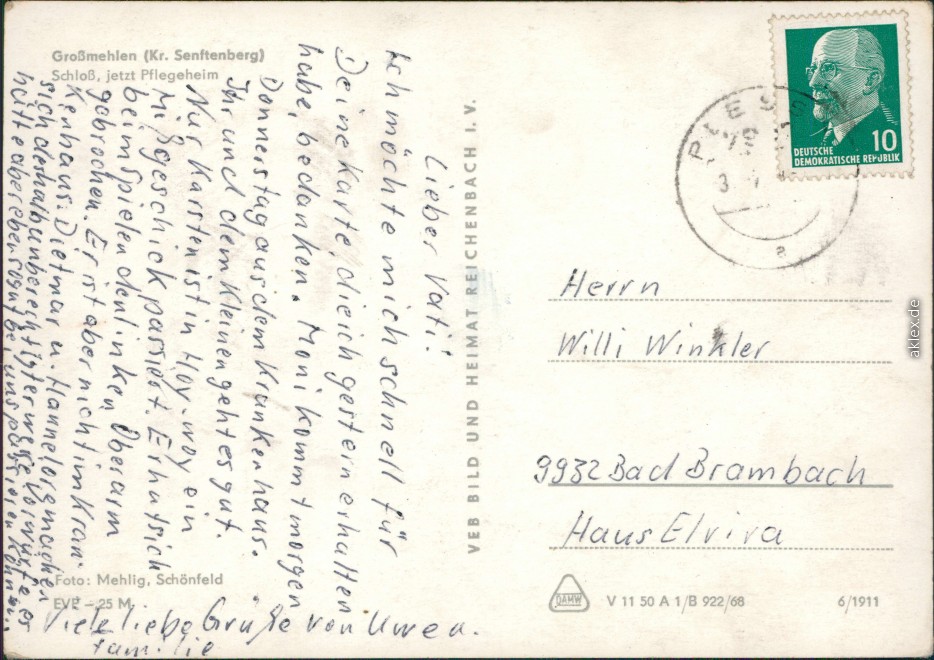 Großmehlen (Kr. Senftenberg)
Schloß, jetzt Pflegeheim
Lieber Vati!
Ich möchte mich schnell für
Deine Karte, die ich gestern erhalten
habe, bedanken. Moni kommt morgen
Donnerstag aus dem Krankenhaus.
Ihr und dem Kleinen geht es gut.
Nur Karsten ist in Hoy. woy ein
Mißgeschick passiert. Er hat sich
beim Spielen den linken Oberarm
gebrochen. Er ist aber nicht im Kran-
kenhaus. Dietmar u. Hannelore machen
sich deshalb unberechtigterweise Vorwürfe, es
hätte aber ebensogut bei uns passieren können.
Viele liebe Grüße von Uwe u.
Familie
Foto: Mehlig, Schönfeld
EVP –,25 M
VEB BILD UND HEIMAT REICHENBACH I. V.
DEUTSCHE
DEMOKRATISCHE REPUBLIK
10
PLESSA
Herrn
Willi Winkler
9932 Bad Brambach
Haus Elvira
DAMW
V 11 50 A 1/B 922/68
6/1911
aklex.de